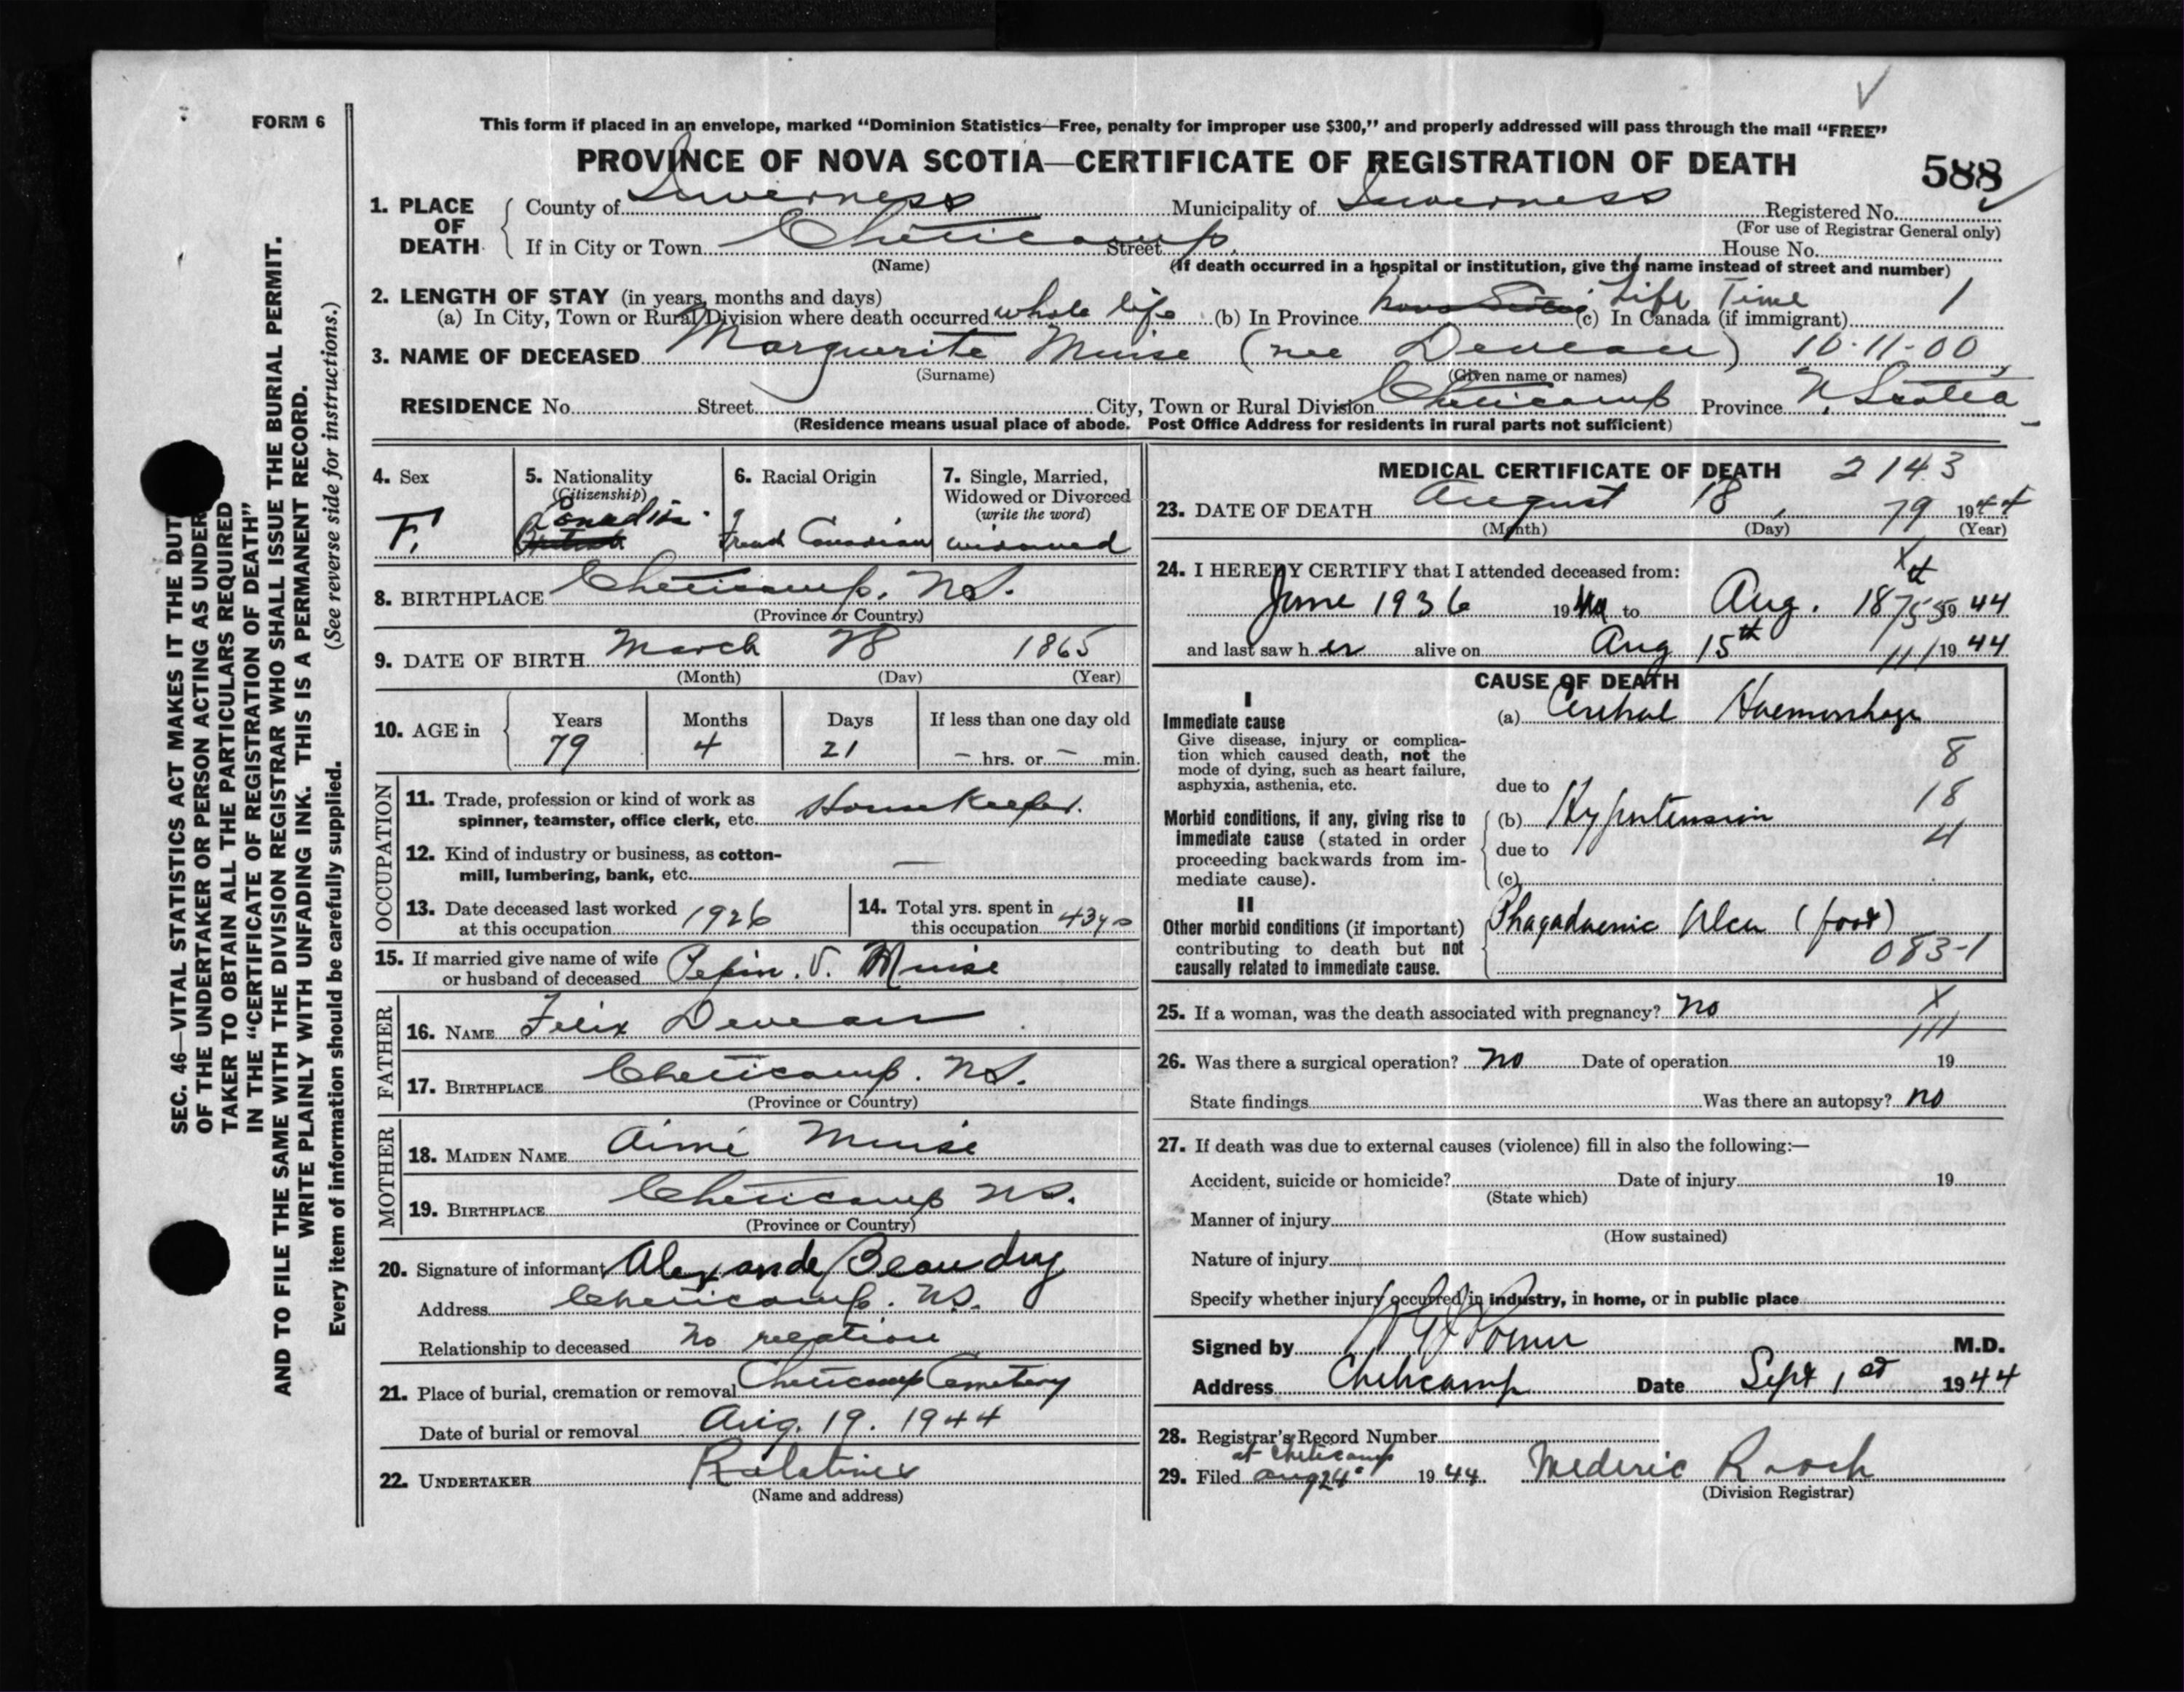 FORM 6
This form if placed in an envelope, marked “Dominion Statistics—Free, penalty for improper use $300,” and properly addressed will pass through the mail “FREE”
PROVINCE OF NOVA SCOTIA—CERTIFICATE OF REGISTRATION OF DEATH
588
1. PLACE OF DEATH
County of Inverness Municipality of Inverness Registered No.
(For use of Registrar General only)
If in City or Town Cheticamp. Street House No.
(Name) (If death occurred in a hospital or institution, give the name instead of street and number)
2. LENGTH OF STAY (in years, months and days)
(a) In City, Town or Rural Division where death occurred whole life (b) In Province Nova Scotia Life Time (c) In Canada (if immigrant) 1
3. NAME OF DECEASED Marguerite Muise (nee Deveau) 10-11-00
(Surname) (Given name or names)
RESIDENCE No. Street City, Town or Rural Division Cheticamp Province N. Scotia
(Residence means usual place of abode. Post Office Address for residents in rural parts not sufficient)
4. Sex
F.
5. Nationality
(Citizenship)
Canadian
6. Racial Origin
French Canadian
7. Single, Married,
Widowed or Divorced
(write the word)
widowed
8. BIRTHPLACE Cheticamp. N.S.
(Province or Country)
9. DATE OF BIRTH March 28 1865
(Month) (Day) (Year)
10. AGE in
Years Months Days If less than one day old
79 4 21 — hrs. or — min.
OCCUPATION
11. Trade, profession or kind of work as
spinner, teamster, office clerk, etc. Housekeeper.
12. Kind of industry or business, as cotton-
mill, lumbering, bank, etc. —
13. Date deceased last worked
at this occupation 1926
14. Total yrs. spent in
this occupation 43 yrs
15. If married give name of wife
or husband of deceased Pefin. V. Muise
FATHER
16. NAME Felix Deveau
17. BIRTHPLACE Cheticamp. N.S.
(Province or Country)
MOTHER
18. MAIDEN NAME Aimé Muise
19. BIRTHPLACE Cheticamp N.S.
(Province or Country)
20. Signature of informant Alexande Beaudry
Address Cheticamp. N.S.
Relationship to deceased No relation
21. Place of burial, cremation or removal Cheticamp Cemetery
Date of burial or removal Aug. 19. 1944
22. UNDERTAKER Relatives
(Name and address)
MEDICAL CERTIFICATE OF DEATH 2143
23. DATE OF DEATH August 18, 79 1944
(Month) (Day) (Year)
24. I HEREBY CERTIFY that I attended deceased from:
June 1936 19 to Aug. 18 1944
and last saw her alive on Aug 15th 1944
CAUSE OF DEATH
I
Immediate cause
Give disease, injury or complica-
tion which caused death, not the
mode of dying, such as heart failure,
asphyxia, asthenia, etc.
(a) Cerebral Haemorrhage
8
due to
18
Morbid conditions, if any, giving rise to
immediate cause (stated in order
proceeding backwards from im-
mediate cause).
(b) Hypertension
4
due to
(c)
II
Other morbid conditions (if important)
contributing to death but not
causally related to immediate cause.
Phagadaenic Ulcer (foot)
083-1
25. If a woman, was the death associated with pregnancy? No
X
111
26. Was there a surgical operation? No Date of operation 19
State findings Was there an autopsy? no
27. If death was due to external causes (violence) fill in also the following:—
Accident, suicide or homicide? Date of injury 19
(State which)
Manner of injury
(How sustained)
Nature of injury
Specify whether injury occurred in industry, in home, or in public place
Signed by M.D.
Address Cheticamp Date Sept 1st 1944
28. Registrar's Record Number
at Cheticamp
29. Filed aug 24 1944. Mederic Roach
(Division Registrar)
SEC. 46—VITAL STATISTICS ACT MAKES IT THE DUTY
OF THE UNDERTAKER OR PERSON ACTING AS UNDER
TAKER TO OBTAIN ALL THE PARTICULARS REQUIRED
IN THE “CERTIFICATE OF REGISTRATION OF DEATH”
AND TO FILE THE SAME WITH THE DIVISION REGISTRAR WHO SHALL ISSUE THE BURIAL PERMIT.
WRITE PLAINLY WITH UNFADING INK. THIS IS A PERMANENT RECORD.
Every item of information should be carefully supplied. (See reverse side for instructions.)